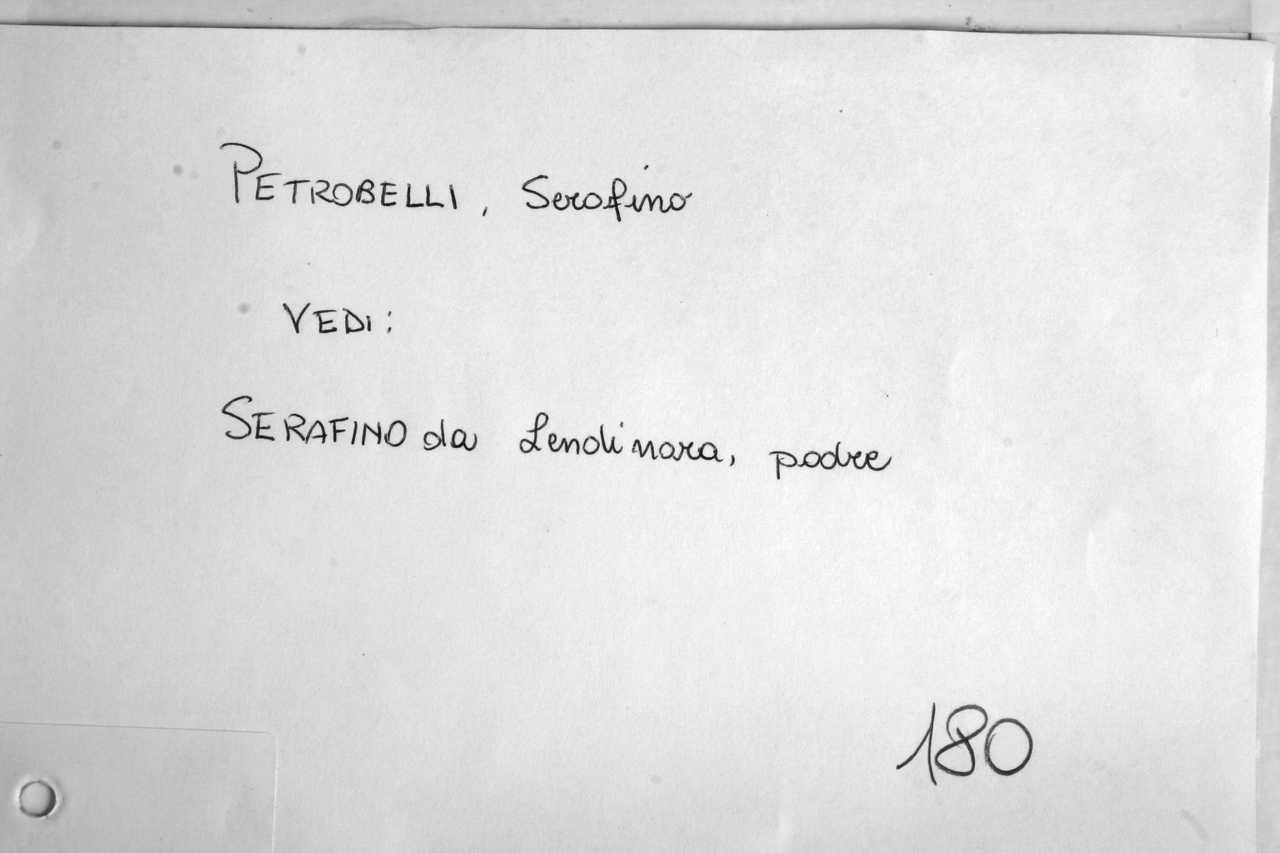 PETROBELLI, Serafino
VEDI:
SERAFINO da Lendinara, padre
180